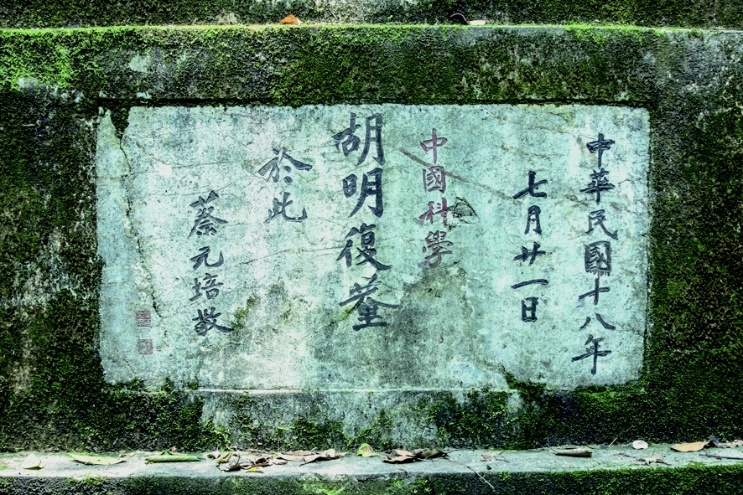 中華民國十八年
七月廿一日
中國科學
胡明復塟
於此
蔡元培敬